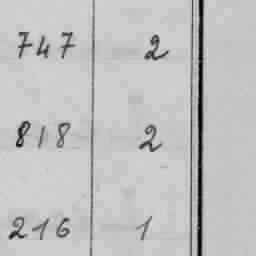 747 2
818 2
216 1